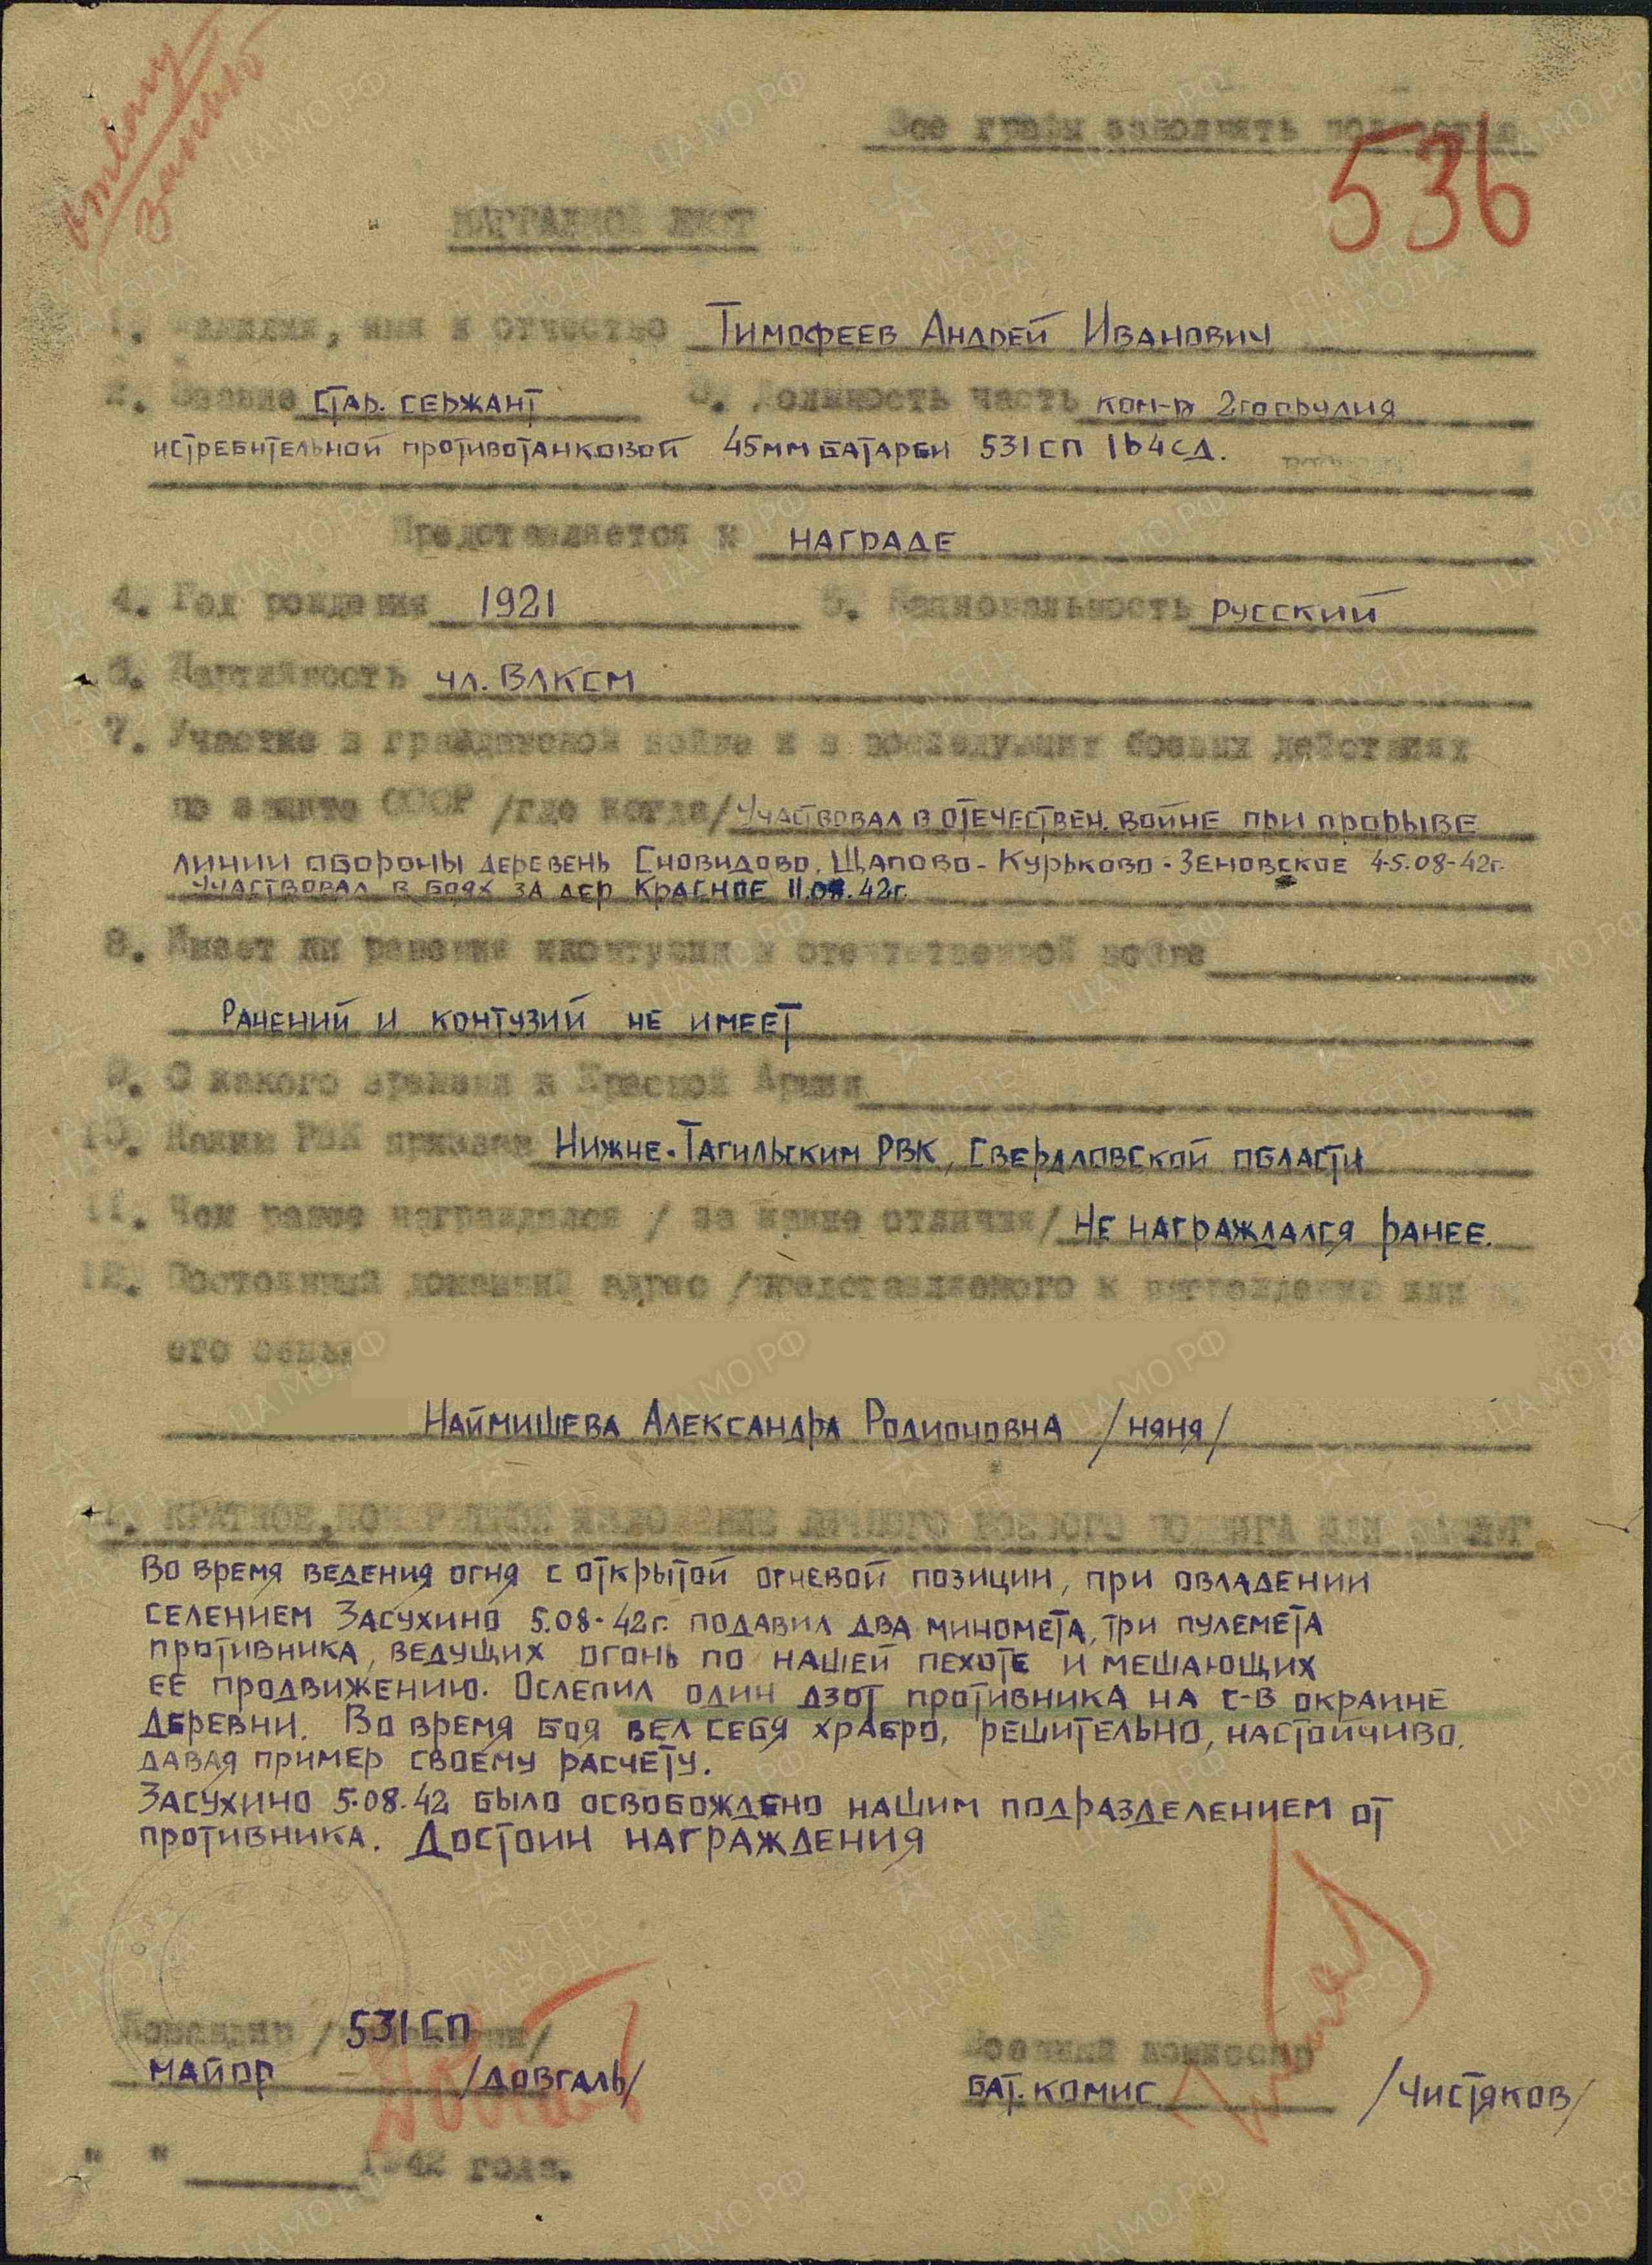 Все графы заполнять полностью
536
НАГРАДНОЙ ЛИСТ
1. Фамилия, имя и отчество Тимофеев Андрей Иванович
2. Звание стар. сержант 3. Должность часть ком-р 2го орудия
истребительной противотанковой 45мм батареи 531 сп 164 сд.
Представляется к награде
4. Год рождения 1921 5. Национальность русский
6. Партийность чл. ВЛКСМ
7. Участие в гражданской войне и в последующих боевых действиях
по защите СССР /где когда/ Участвовал в отечествен. войне при прорыве
линии обороны деревень Сновидово, Щапово-Курьково-Зеновское 4-5.08-42г.
Участвовал в боях за дер Красное 11.08.42г.
8. Имеет ли ранения и контузии в отечественной войне
Ранений и контузий не имеет
9. С какого времени в Красной Армии
10. Каким РВК призван Нижне-Тагильским РВК, Свердловской области
11. Чем ранее награждался /за какие отличия/ Не награждался ранее.
12. Постоянный домашний адрес /представляемого к награждению или
его семьи
Наймишева Александра Родионовна /няня/
1. КРАТКОЕ, КОНКРЕТНОЕ ИЗЛОЖЕНИЕ ЛИЧНОГО БОЕВОГО ПОДВИГА ИЛИ ЗАСЛУГ
Во время ведения огня с открытой огневой позиции, при овладении
селением Засухино 5.08-42г. подавил два миномета, три пулемета
противника, ведущих огонь по нашей пехоте и мешающих
ее продвижению. Ослепил один дзот противника на с-в окраине
деревни. Во время боя вел себя храбро, решительно, настойчиво,
давая пример своему расчету.
Засухино 5.08.42 было освобождено нашим подразделением от
противника. Достоин награждения
Командир 531 сп
майор /Довгаль/
Военный комиссар
бат. комис. /Чистяков/
" " 1942 года.